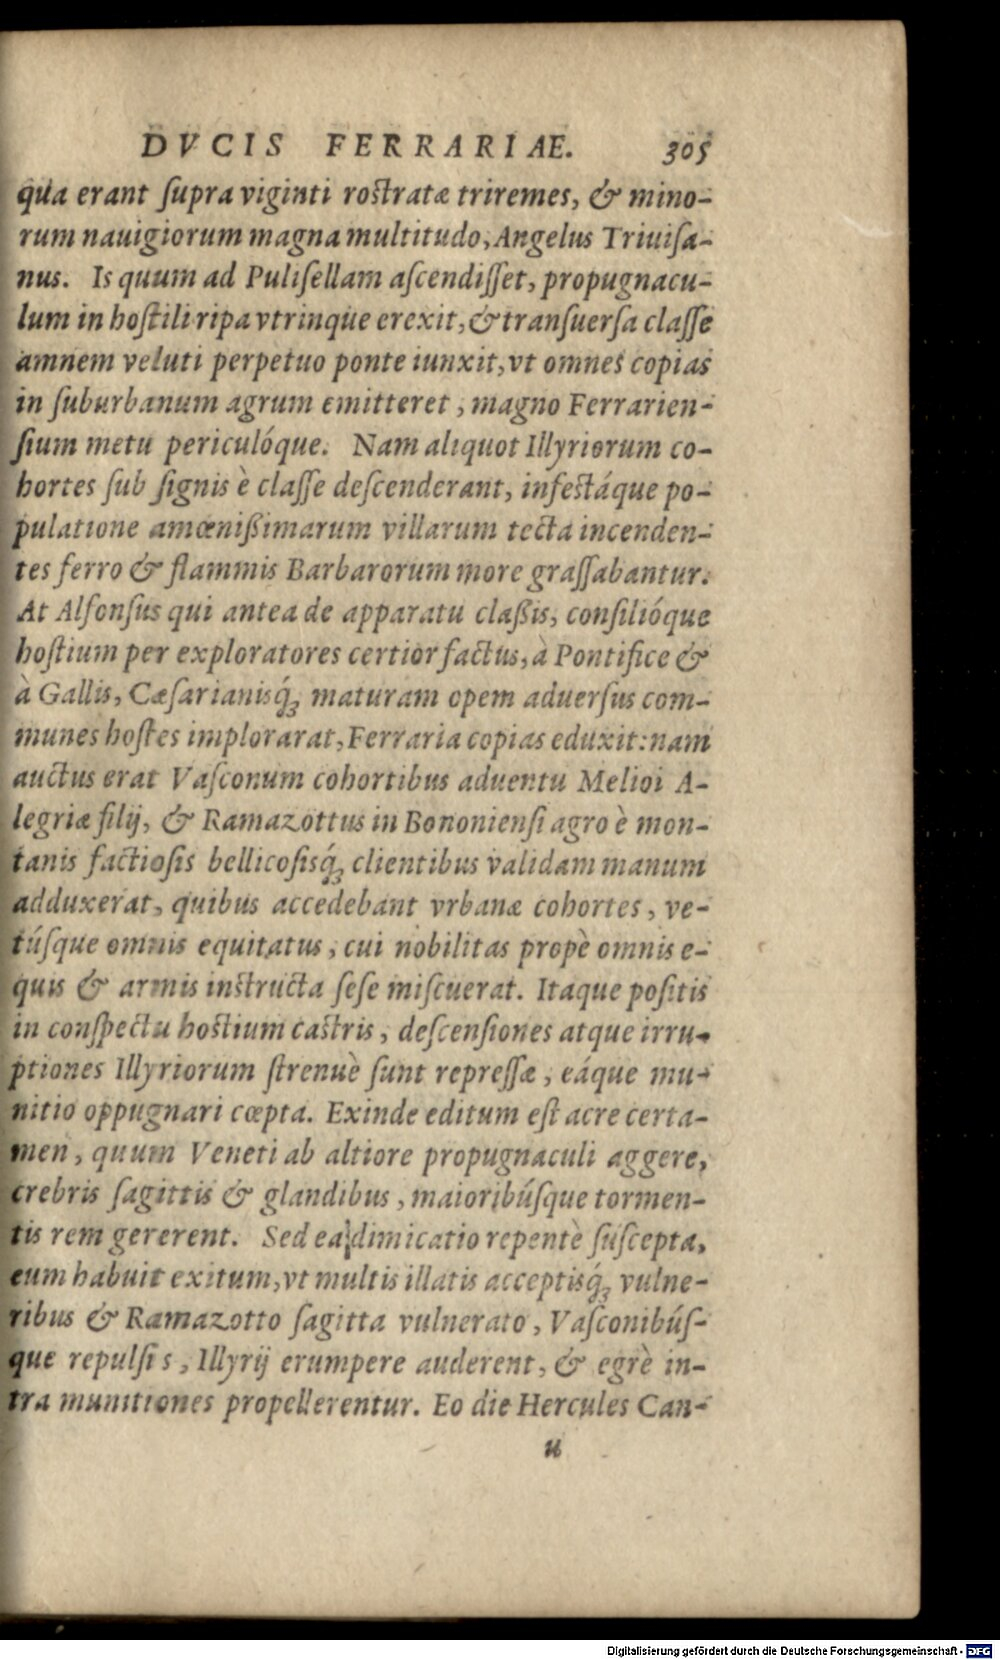 DVCIS FERRARIAE. 305
qua erant ſupra viginti roſtratæ triremes, & mino-
rum nauigiorum magna multitudo, Angelus Triuiſa-
nus. Is quum ad Puliſellam aſcendiſſet, propugnacu-
lum in hoſtili ripa vtrinque erexit, & tranſuerſa claſſe
amnem veluti perpetuo ponte iunxit, vt omnes copias
in ſuburbanum agrum emitteret, magno Ferrarien-
ſium metu periculóque. Nam aliquot Illyriorum co-
hortes ſub ſignis è claſſe deſcenderant, infeſtáque po-
pulatione amœnißimarum villarum tecta incenden-
tes ferro & flammis Barbarorum more graſſabantur.
At Alfonſus qui antea de apparatu claßis, conſilióque
hoſtium per exploratores certior factus, à Pontifice &
à Gallis, Cæſarianisq́; maturam opem aduerſus com-
munes hoſtes implorarat, Ferraria copias eduxit: nam
auctus erat Vaſconum cohortibus aduentu Melioi A-
legriæ filij, & Ramazottus in Bononienſi agro è mon-
tanis factioſis bellicoſisq́; clientibus validam manum
adduxerat, quibus accedebant vrbanæ cohortes, ve-
túſque omnis equitatus, cui nobilitas propè omnis e-
quis & armis inſtructa ſeſe miſcuerat. Itaque poſitis
in conſpectu hoſtium caſtris, deſcenſiones atque irru-
ptiones Illyriorum ſtrenuè ſunt repreſſæ, eáque mu-
nitio oppugnari cœpta. Exinde editum eſt acre certa-
men, quum Veneti ab altiore propugnaculi aggere,
crebris ſagittis & glandibus, maioribúſque tormen-
tis rem gererent. Sed ea dimicatio repentè ſuſcepta,
eum habuit exitum, vt multis illatis acceptisq́; vulne-
ribus & Ramazotto ſagitta vulnerato, Vaſconibúſ-
que repulſis, Illyrij erumpere auderent, & egrè in-
tra munitiones propellerentur. Eo die Hercules Can-
u
Digitalisierung gefördert durch die Deutsche Forschungsgemeinschaft - DFG